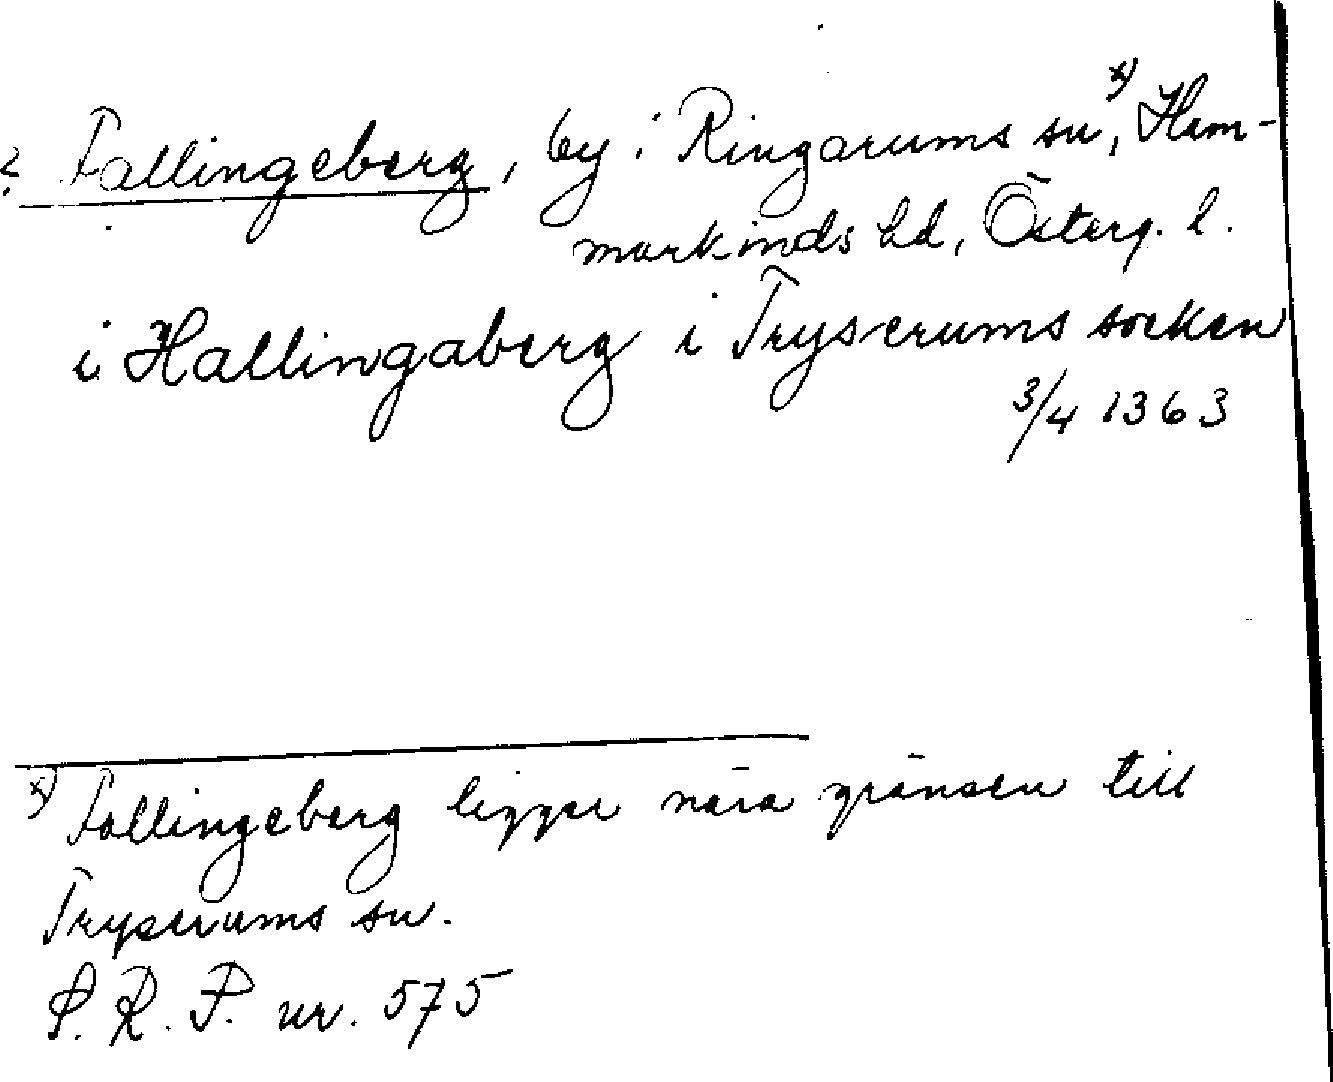 ? Fallingeberg, by i Ringarums sn, x) Ham-
markinds hd, Österg. l.
i Hallingaberg i Tryserums socken
3/4 1363
x) Fallingeberg ligger nära gränsen till
Tryserums sn.
S. R. P. nr. 575